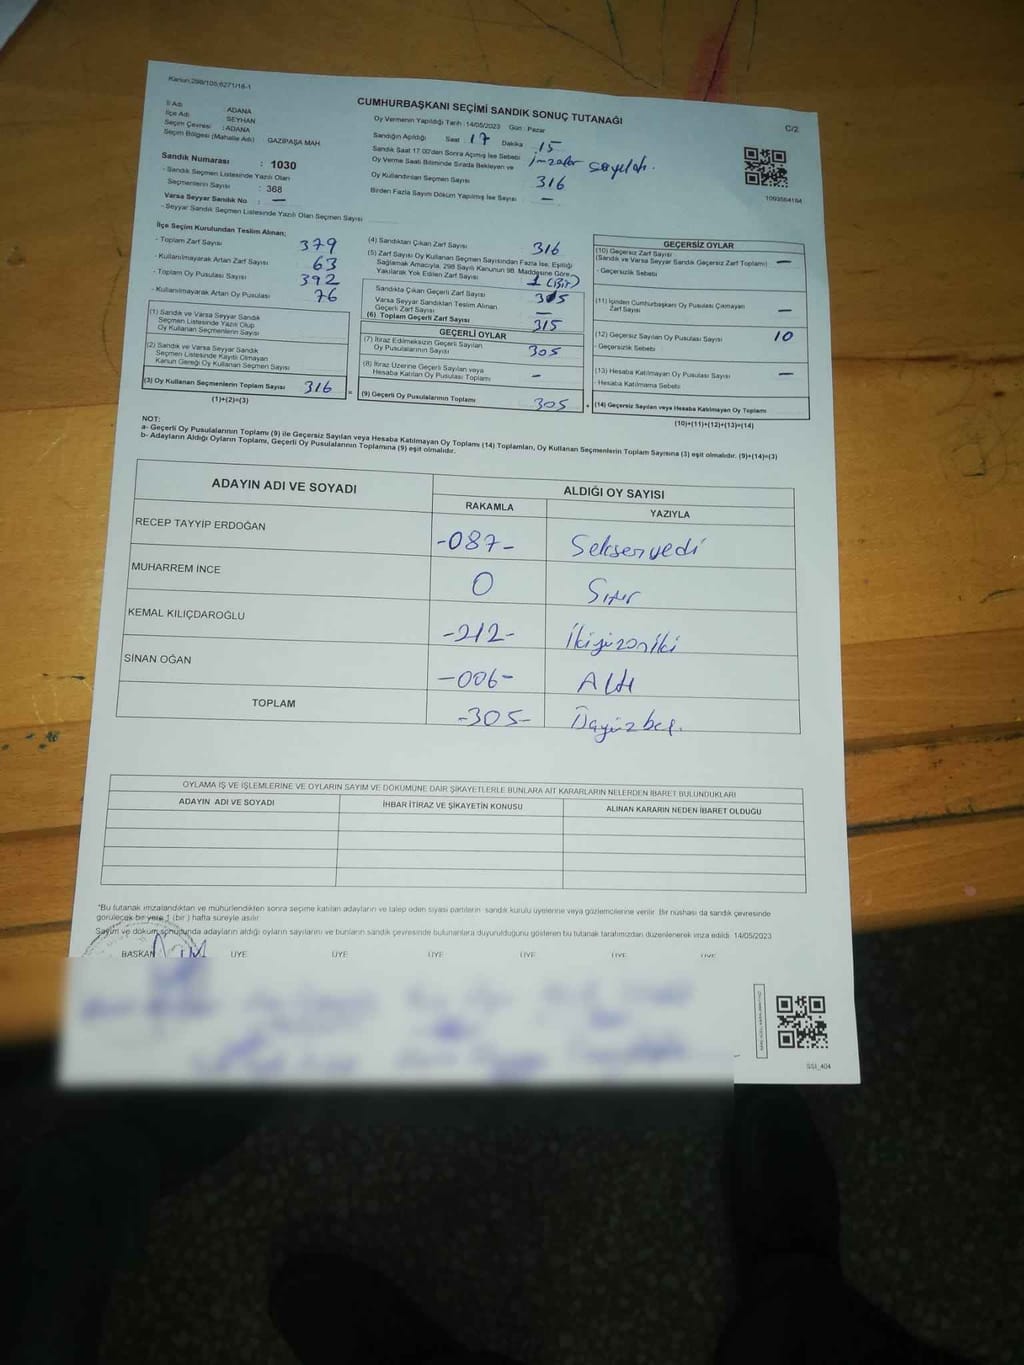 Kanun:298/105,6271/18-1
CUMHURBAŞKANI SEÇİMİ SANDIK SONUÇ TUTANAĞI
C/2
İl Adı : ADANA
İlçe Adı : SEYHAN
Seçim Çevresi : ADANA
Seçim Bölgesi (Mahalle Adı) GAZİPAŞA MAH
Oy Vermenin Yapıldığı Tarih : 14/05/2023 Gün : Pazar
Sandığın Açıldığı Saat 17 Dakika : 15
Sandık Saat 17.00'den Sonra Açılmış İse Sebebi : İmzalar sayıldı.
Oy Verme Saati Bitiminde Sırada Bekleyen ve
Oy Kullandırılan Seçmen Sayısı 316
Birden Fazla Sayım Döküm Yapılmış İse Sayısı —
1093564164
Sandık Numarası : 1030
- Sandık Seçmen Listesinde Yazılı Olan
Seçmenlerin Sayısı : 368
Varsa Seyyar Sandık No : —
- Seyyar Sandık Seçmen Listesinde Yazılı Olan Seçmen Sayısı
İlçe Seçim Kurulundan Teslim Alınan;
- Toplam Zarf Sayısı 379
- Kullanılmayarak Artan Zarf Sayısı 63
- Toplam Oy Pusulası Sayısı 392
- Kullanılmayarak Artan Oy Pusulası 76
(1) Sandık ve Varsa Seyyar Sandık
Seçmen Listesinde Yazılı Olup
Oy Kullanan Seçmenlerin Sayısı
(2) Sandık ve Varsa Seyyar Sandık
Seçmen Listesinde Kayıtlı Olmayan
Kanun Gereği Oy Kullanan Seçmen Sayısı
(3) Oy Kullanan Seçmenlerin Toplam Sayısı 316
(1)+(2)=(3)
(4) Sandıktan Çıkan Zarf Sayısı 316
(5) Zarf Sayısı Oy Kullanan Seçmen Sayısından Fazla İse, Eşitliği
Sağlamak Amacıyla, 298 Sayılı Kanunun 98. Maddesine Göre
Yakılarak Yok Edilen Zarf Sayısı 1 (Bir)
Sandıkta Çıkan Geçerli Zarf Sayısı 315
Varsa Seyyar Sandıktan Teslim Alınan
Geçerli Zarf Sayısı —
(6) Toplam Geçerli Zarf Sayısı 315
GEÇERLİ OYLAR
(7) İtiraz Edilmeksizin Geçerli Sayılan
Oy Pusulalarının Sayısı 305
(8) İtiraz Üzerine Geçerli Sayılan veya
Hesaba Katılan Oy Pusulası Toplamı –
(9) Geçerli Oy Pusulalarının Toplamı 305
GEÇERSİZ OYLAR
(10) Geçersiz Zarf Sayısı
(Sandık ve Varsa Seyyar Sandık Geçersiz Zarf Toplamı) —
- Geçersizlik Sebebi
(11) İçinden Cumhurbaşkanı Oy Pusulası Çıkmayan
Zarf Sayısı —
(12) Geçersiz Sayılan Oy Pusulası Sayısı 10
- Geçersizlik Sebebi
(13) Hesaba Katılmayan Oy Pusulası Sayısı —
- Hesaba Katılmama Sebebi
+ (14) Geçersiz Sayılan veya Hesaba Katılmayan Oy Toplamı
(10)+(11)+(12)+(13)=(14)
NOT:
a- Geçerli Oy Pusulalarının Toplamı (9) ile Geçersiz Sayılan veya Hesaba Katılmayan Oy Toplamı (14) Toplamları, Oy Kullanan Seçmenlerin Toplam Sayısına (3) eşit olmalıdır. (9)+(14)=(3)
b- Adayların Aldığı Oyların Toplamı, Geçerli Oy Pusulalarının Toplamına (9) eşit olmalıdır.
ADAYIN ADI VE SOYADI
ALDIĞI OY SAYISI
RAKAMLA YAZIYLA
RECEP TAYYIP ERDOĞAN -087- Seksenyedi
MUHARREM İNCE 0 Sıfır
KEMAL KILIÇDAROĞLU -212- İkiyüzoniki
SİNAN OĞAN -006- Altı
TOPLAM -305- Üçyüzbeş.
OYLAMA İŞ VE İŞLEMLERİNE VE OYLARIN SAYIM VE DÖKÜMÜNE DAİR ŞİKAYETLERLE BUNLARA AİT KARARLARIN NELERDEN İBARET BULUNDUKLARI
ADAYIN ADI VE SOYADI İHBAR İTİRAZ VE ŞİKAYETİN KONUSU ALINAN KARARIN NEDEN İBARET OLDUĞU
*Bu tutanak imzalandıktan ve mühürlendikten sonra seçime katılan adayların ve talep eden siyasi partilerin sandık kurulu üyelerine veya gözlemcilerine verilir. Bir nüshası da sandık çevresinde
görülecek bir yere 1 (bir ) hafta süreyle asılır.
Sayım ve döküm sonucunda adayların aldığı oyların sayılarını ve bunların sandık çevresinde bulunanlara duyurulduğunu gösteren bu tutanak tarafımızdan düzenlenerek imza edildi. 14/05/2023
BAŞKAN ÜYE ÜYE ÜYE ÜYE ÜYE ÜYE
SSI_404